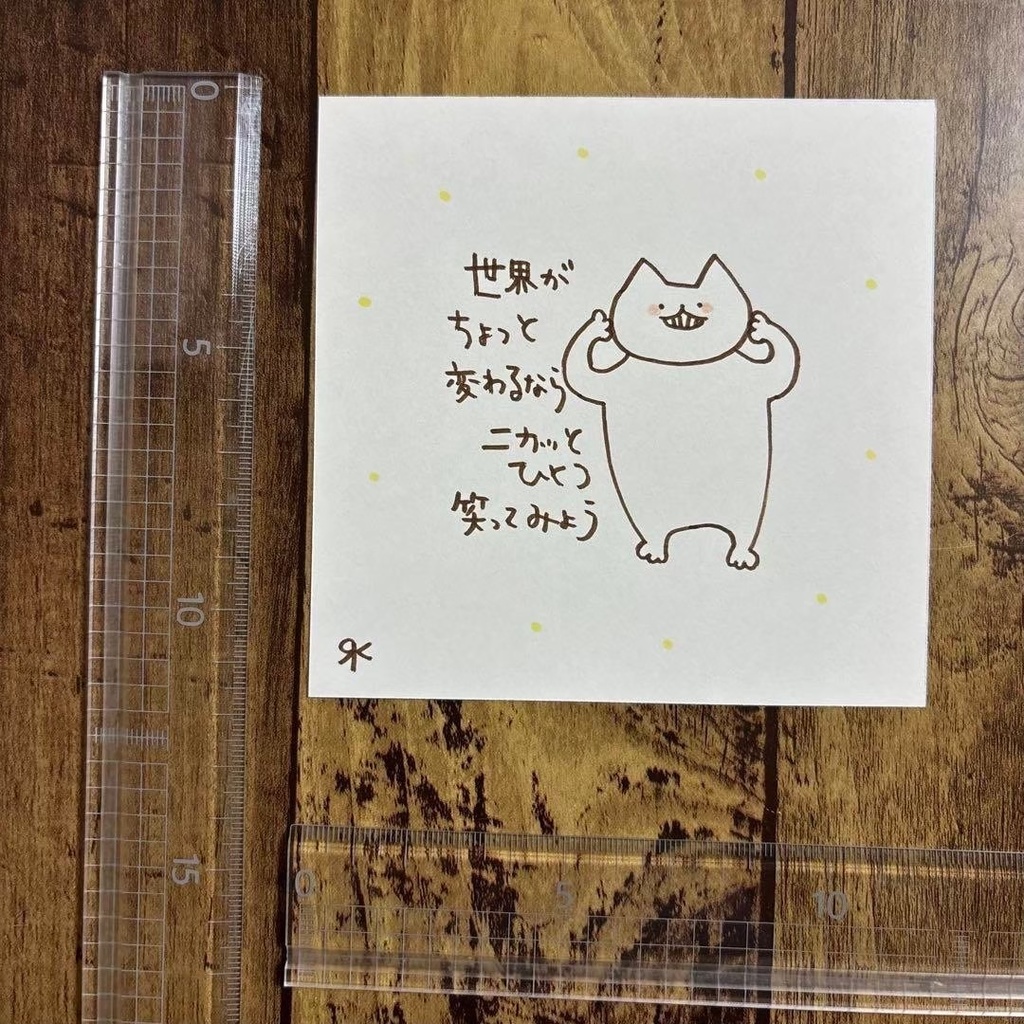 世界が
ちょっと
変わるなら
ニカッと
ひとつ
笑ってみよう
0
5
10
15
0
5
10